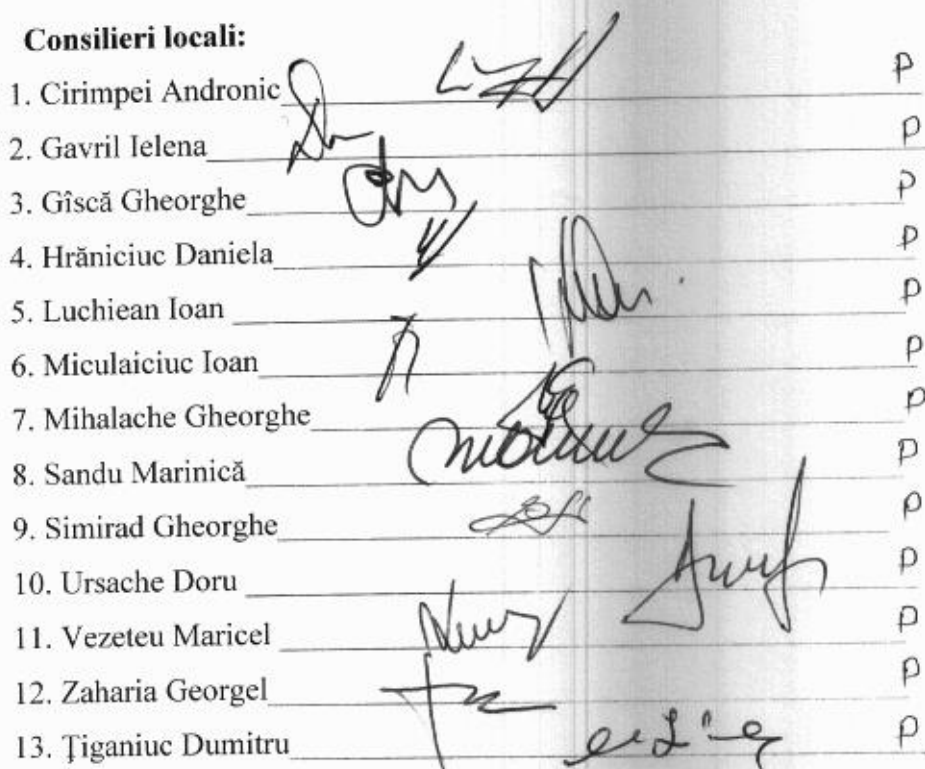 Consilieri locali:
1. Cirimpei Andronic P
2. Gavril Ielena P
3. Gîscă Gheorghe P
4. Hrăniciuc Daniela P
5. Luchiean Ioan P
6. Miculaiciuc Ioan P
7. Mihalache Gheorghe P
8. Sandu Marinică P
9. Simirad Gheorghe P
10. Ursache Doru P
11. Vezeteu Maricel P
12. Zaharia Georgel P
13. Țiganiuc Dumitru P